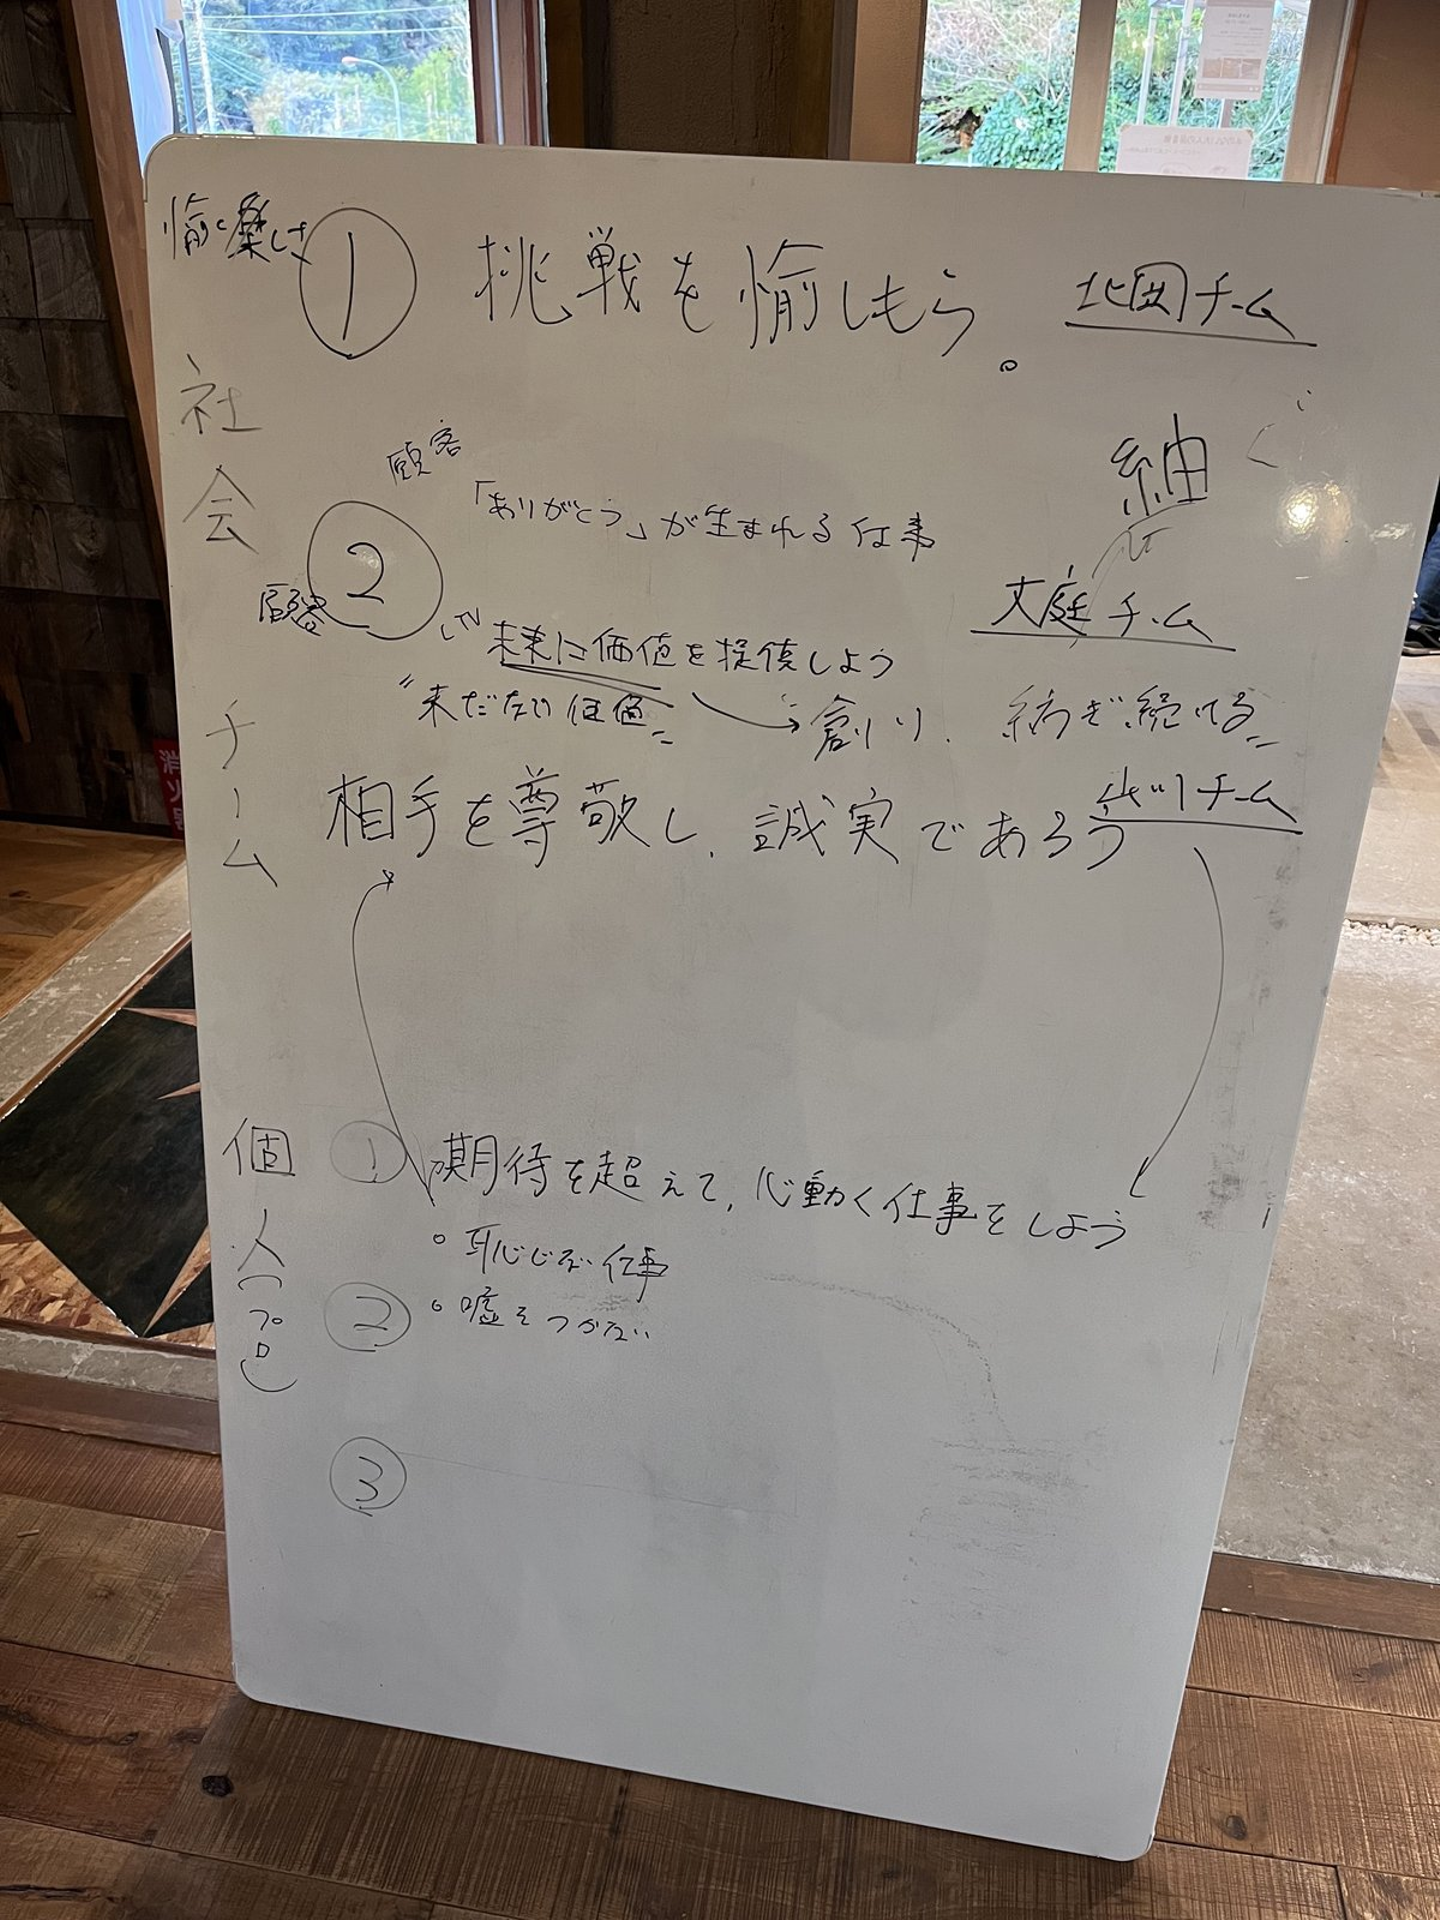 愉と楽しさ
① 挑戦を愉しもう。 北図チーム
社会
顧客
「ありがとう」が生まれる仕事
紬
②
大庭チーム
未来に価値を提供しよう
"未だない価値" 創り、紡ぎ続ける
チーム
相手を尊敬し、誠実であろう
チーム
個人(プロ)
① 期待を超えて、心動く仕事をしよう
○ 恥じない仕事
② ○ 嘘をつかない
③